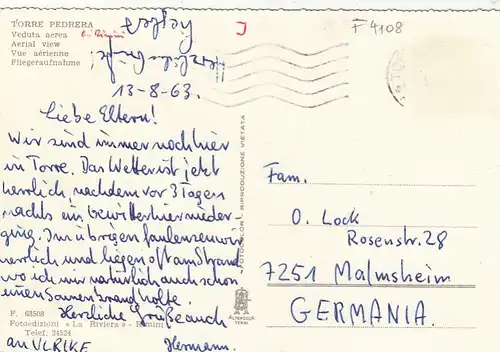 TORRE PEDRERA
Veduta aerea bei Rimini
Aerial view
Vue aérienne
Fliegeraufnahme
J
F 4108
Herzliche Grüße!
13-8-63.
Liebe Eltern!
Wir sind immer noch hier
in Torre. Das Wetter ist jetzt
herrlich, nachdem vor 3 Tagen
nachts ein Gewitter hier nieder
ging. Im übrigen faulenzen wir
herrlich und liegen oft am Strand
wo ich mir natürlich auch schon
einen Sonnenbrand holte.
Herzliche Grüße auch
an ULRIKE Hermann.
F. 63508
Fotoedizioni «La Riviera» - Rimini
Telef. 24524
FOTOCOLOR - RIPRODUZIONE VIETATA
ALTEROCCA
TERNI
Fam.
O. Lock
Rosenstr. 28
7251 Malmsheim
GERMANIA.